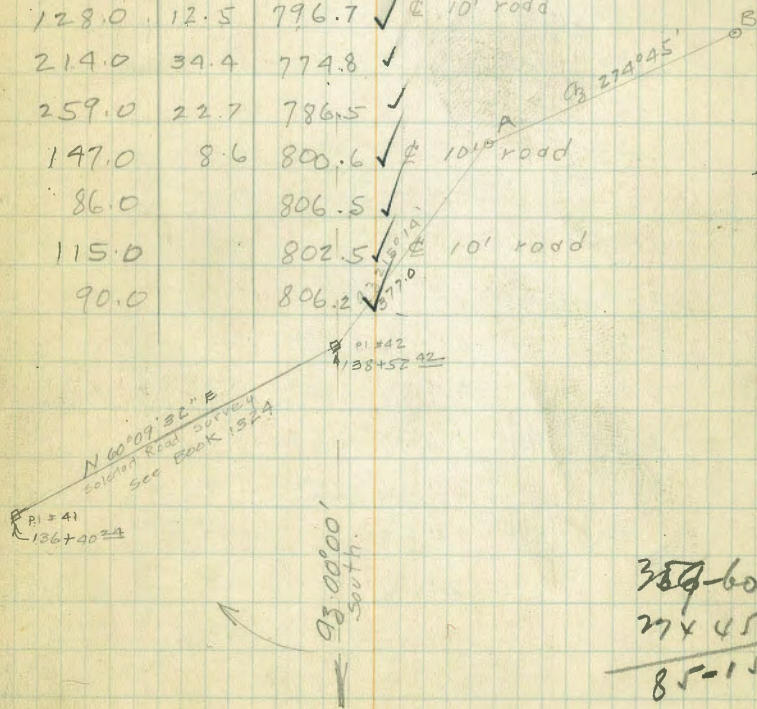 128.0 12.5 796.7 ✓ ℄ 10' road
214.0 34.4 774.8 ✓
259.0 22.7 786.5 ✓
147.0 8.6 800.6 ✓ ℄ 10' road
86.0 806.5 ✓
115.0 802.5 ✓ ℄ 10' road
90.0 806.2 ✓
B
Az 274°45'
A
377.0
P.I #42
138+52 42
N 60°09'32" E
Soledad Road Survey
See Book 1324
P.I #41
136+40 24
Az. 00°00'
South.
359-60
85-15